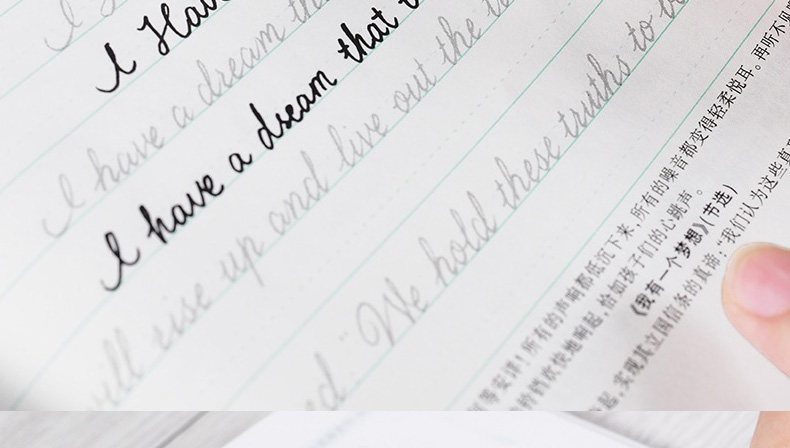 I Hav
I have a dream th
I have a dream that
I have a dream that t
will rise up and live out the t
"We hold these truths to b
何等安详!所有的声响都低沉下来,所有的噪音都变得轻柔悦耳。再听不见
铃铛欢快地响起,恰如孩子们的心跳声。
《我有一个梦想》(节选)
起,实现其立国信条的真谛:"我们认为这些真